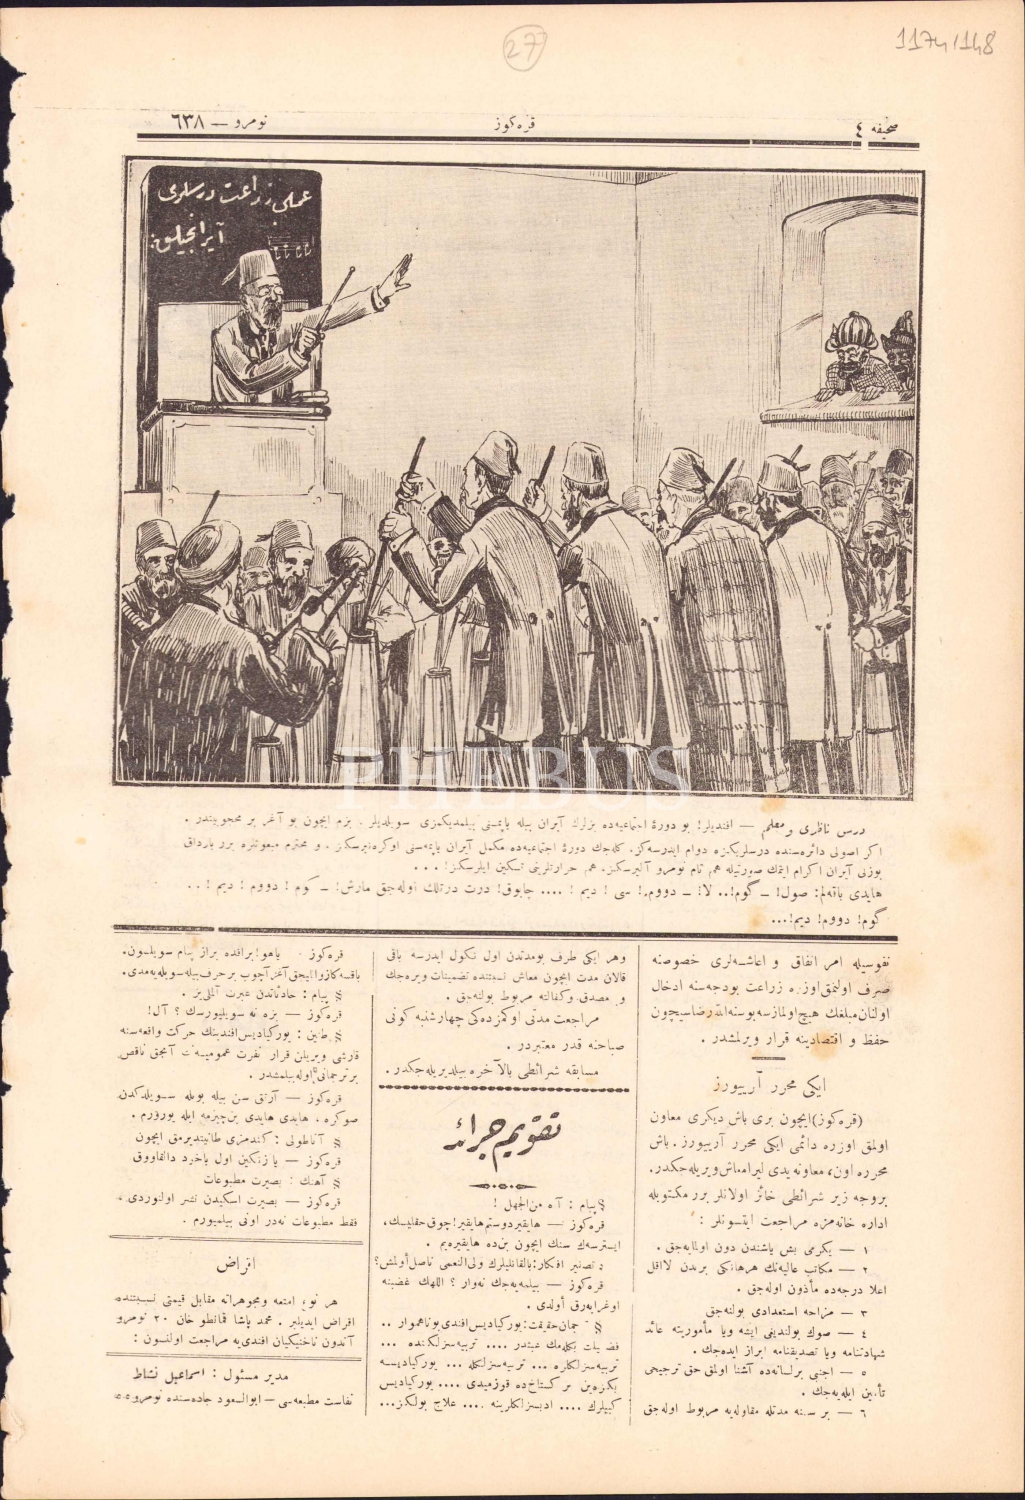 27
1174/148
صحیفه ٤
قره‌كوز
نومرو — ٦٣٨
عملی زراعت درسلری
آیرانجیلق:
درس ناظری و معلم — افندیلر! بو دورهٔ اجتماعیه‌ده بزلرك آیران بیله یاپمسنی بیلمدیكمزی سویلدیلر. بزم ایچون بو آغر بر محجوبیتدر.
اكر اصولی دائره‌سنده درسلریكزه دوام ایدرسه‌كز، كله‌جك دورهٔ اجتماعیه‌ده مكمل آیران یاپمه‌سنی اوكره‌نیرسكز. و محترم مبعوثلره برر بارداق
بوزلی آیران اكرام ایتمك صورتیله هم تام نومرو آلیرسكز، هم حرارتلرینی تسكین ایلرسكز! ...
هایدی باقه‌لم: صول! — گوم!.. لا! — دووم.! سی! دیم! .... چابوق! درت درتلك اوله‌جق مارش! — كوم! دووم! دیم! ..
گوم! دووم! دیم!...
نفوسیله امر انفاق و اعاشه‌لری خصوصنه
صرف اولنمق اوزره زراعت بودجه‌سنه ادخال
اولنان مبلغك هیچ اولمازسه بوسنه الله رضاسیچون
حفظ و اقتصادینه قرار ویرلمشدر.
ایكی محرر آرییورز
(قره‌كوز) ایچون بری باش دیكری معاون
اولمق اوزره دائمی ایكی محرر آرییورز. باش
محرره اون، معاونه یدی لیرا معاش ویریله‌جكدر.
بروجه زیر شرائطی حائز اولانلر برر مكتوبله
اداره خانه‌مزه مراجعت ایتسونلر:
١ — یكرمی بش یاشندن دون اولمایه‌جق.
٢ — مكاتب عالیه‌نك هرهانكی برندن لااقل
اعلا درجه‌ده مأذون اوله‌جق.
٣ — مزاحه استعدادی بولنه‌جق
٤ — صوك بولندیغی ایشه ویا مأموریته عائد
شهادتنامه ویا تصدیقنامه ابراز ایده‌جك.
٥ — اجنبی برلسانه‌ده آشنا اولمق حق ترجیحی
تأمین ایله‌یه‌جك.
٦ — بر سنه مدتله مقاوله‌یه مربوط اوله‌جق
وهر ایكی طرف بومدتدن اول نكول ایدرسه باقی
قالان مدت ایچون معاش نسبتنده تضمینات ویره‌جك
و مصدق وكفالته مربوط بولنه‌جق.
مراجعت مدتی اوكمزده‌كی چهارشنبه كونی
صباحنه قدر معتبردر.
مسابقه شرائطی بالآخره بیلدیریله‌جكدر.
تقویم جرائد
§ پیام: آه من الجهل!
قره‌كوز — هایقیر دوستم هایقیر! چوق حقلیسك،
ایسترسه‌ك سنك ایچون بن‌ده هایقیره‌یم.
تصویر افكار: بالقانلیلرك ولی النعمی ناصل أولمش؟
قره‌كوز — بیلمه‌یه‌جك نه‌وار؟ اللهك غضبنه
اوغرایه‌رق أولدی.
بوركیادیس افندی بو ناهموار ..
... تربیه سزلكنده ...
تربیه‌سزلكلره ... تربیه سزلكله ... بوركیادیسه
.... بوركیادیس
كبیلرك .... ادبسزلكلرینه .... علاج بولكز...
قره‌كوز — یاهو! براقده براز پیام سویلسون.
§ پیام: حادثاتدن عبرت آلملی‌یز.
قره‌كوز — بزه نه سویلیورسك؟ آل!
§ طنین: بوركیادیس افندینك حركت واقعه‌سنه
قارشی ویریلن قرار نفرت عمومیه‌نك آنجق ناقص
بر ترجمانی اوله‌بیلمشدر.
قره‌كوز — آرتق سن بیله بویله سویلدكدن
صوكره، هایدی هایدی بن چیزمه ایله یورورم.
§ آناطولی: كندمزی طانیتدیرمق ایچون
قره‌كوز — یا زنكین اول یاخود
§ آهنك: بصیرت مطبوعات
قره‌كوز — بصیرت اسكیدن نشر اولنوردی،
فقط مطبوعات نه‌در اونی بیلمیورم.
اقراض
هر نوع امتعه ومجوهراته مقابل قیمتی نسبتنده
اقراض ایدیلیر. محمد پاشا خان ٢٠ نومروده
افندی‌یه مراجعت اولنسون:
مدیر مسئول: اسماعیل نشاط
نفاست مطبعه‌سی — ابوالسعود جاده‌سنده نومرو
PHEBUS